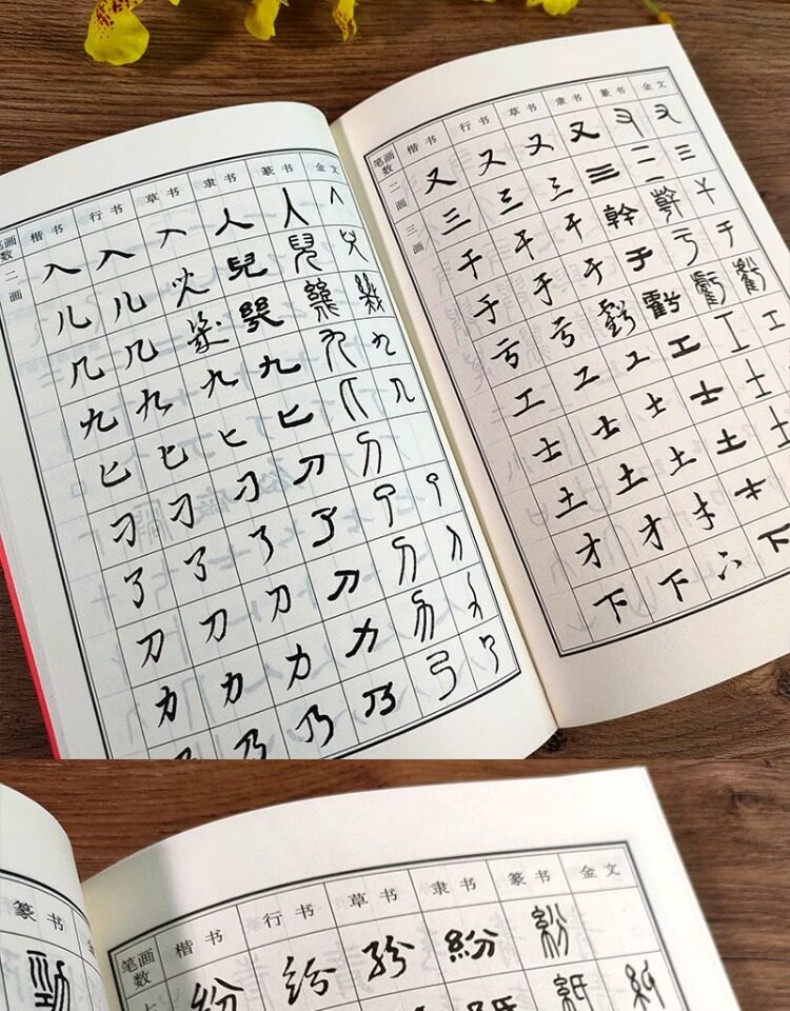 笔画数 楷书 行书 草书 隶书 篆书 金文
二画
入 入 入 入 入 入
儿 儿 儿 兒 兒 兒
几 几 幾 幾 幾 幾
九 九 九 九 九 九
匕 匕 匕 匕 匕 匕
刁 刁 刁 刁 刁
了 了 了 了 了 了
刀 刀 刀 刀 刀 刀
力 力 力 力 力 力
乃 乃 乃 乃 乃 乃
笔画数 楷书 行书 草书 隶书 篆书 金文
二画 又 又 又 又 又 又
三画 三 三 三 三 三 三
干 干 干 幹 幹 干
于 于 于 于 于 于
亏 亏 虧 虧 虧 虧
工 工 工 工 工 工
士 士 士 士 士
土 土 土 土 土
才 才 才 才
下 下 下 下
篆书
勁
笔画数 楷书 行书 草书 隶书 篆书 金文
纷 纷 纷 紛 紛
紙 紙 紙